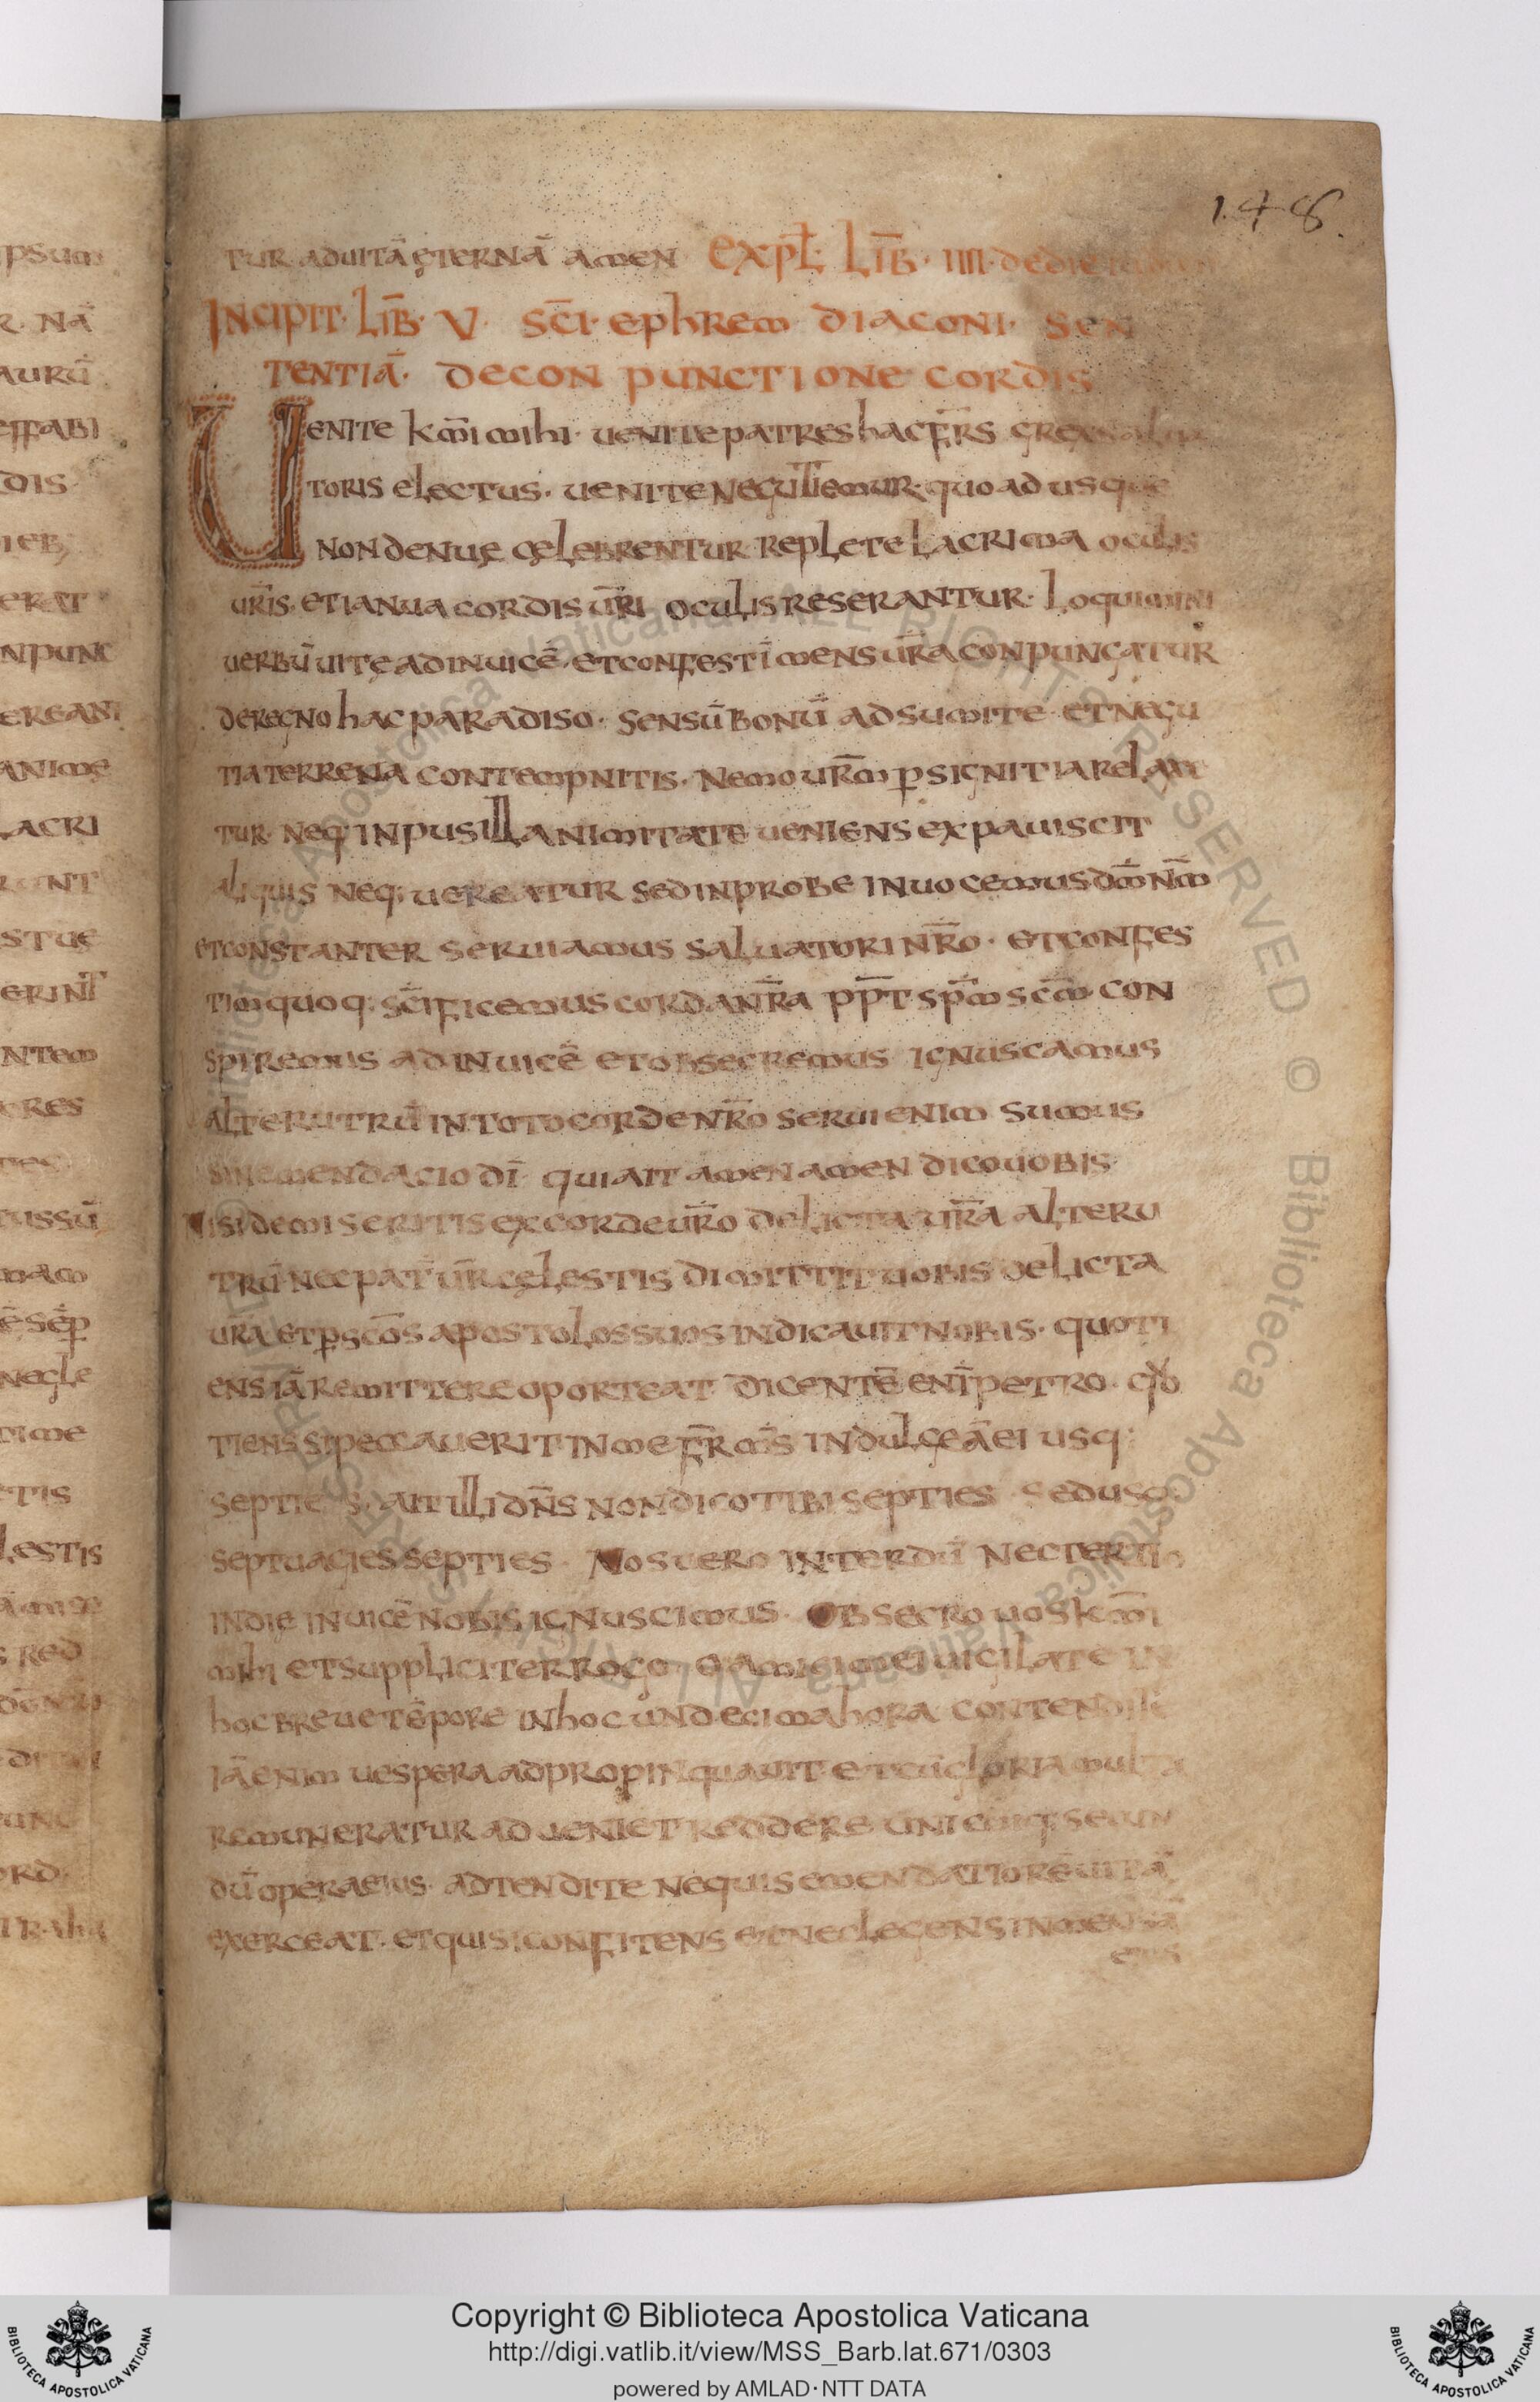 148
TUR ADUITĀ ĘTERNĀ AMEN EXPL̄ · LIB̄ · IIII · DEDIE
INCIPIT · LIB̄ · V · SC̄I · EPHREM DIACONI · SEN
TENTIĀ · DECON PUNCTIONE CORDIS
UENITE KM̄I MIHI · UENITE PATRES HAC FR̄S GREX
TORIS ELECTUS · UENITE NEGUTIEMUR · QUO AD USQUE
NON DENUĘ CELEBRENTUR REPLETE LACRIMA OCULIS
UR̄IS · ET IANUA CORDIS UR̄I OCULIS RESERANTUR · LOQUIMINI
UERBŪ UITĘ ADINUICĒ · ET CONFESTĪ MENS UR̄A CONPUNGATUR
DEREGNO HAC PARADISO · SENSŪ BONŪ ADSUMITE · ET NEGU
TIA TERRENA CONTEMPNITIS · NEMO UR̄M P̱ SIGNITIA RELAXE
TUR · NEQ; IN PUSILLANIMITATE UENIENS EXPAUISCIT
ALIQUIS NEQ; UEREATUR SED INPROBE INUOCEMUS DM̄ NM̄
ET CONSTANTER SERUIAMUS SALUATORI NR̄O · ET CONFES
TIM QUOQ; SC̄IFICEMUS CORDA NR̄A PP̄T SP̄M SC̄M CON
SPIREMUS ADINUICĒ ET OBSECREMUS IGNUSCAMUS
ALTERUTRŪ IN TOTO CORDE NR̄O SERUI ENIM SUMUS
SINE MENDACIO DĪ QUI AIT AMEN AMEN DICO UOBIS
NISI DEMISERITIS EX CORDE UR̄O DELICTA UR̄A ALTERU
TRŪ NEC PAT̄ UR̄ CĘLESTIS DIMITTIT UOBIS DELICTA
UR̄A ET P̱ SCŌS APOSTOLOS SUOS INDICAUIT NOBIS · QUOTI
ENS IĀ REMITTERE OPORTEAT DICENTĒ ENĪ PETRO · QUO
TIENS SI PECCAUERIT IN ME FR̄ M̄S INDULGEĀ EI USQ;
SEPTIES · AIT ILLI DN̄S NON DICO TIBI SEPTIES SED USQ
SEPTUAGIES SEPTIES · NOS UERO INTERDŪ NEC TERTIO
IN DIE INUICĒ NOBIS IGNUSCIMUS · OBSECRO UOS KM̄I
MIHI ET SUPPLICITER ROGO O AMICI MEI UIGILATE IN
HOC BREUE TĒPORE IN HOC UNDECIMA HORA CONTENDITE
IĀ ENIM UESPERA ADPROPINQUAUIT ET CŪ GLORIA MULTA
REMUNERATUR ADUENIET REDDERE UNICUIQ; SECUN
DŪ OPERA EIUS · ADTENDITE NEQUIS EMENDATIORĒ UITĀ
EXERCEAT · ET QUISI CONFITENS ET NECLEGENS IN MENSĀ
EIUS
Copyright © Biblioteca Apostolica Vaticana
http://digi.vatlib.it/view/MSS_Barb.lat.671/0303
powered by AMLAD·NTT DATA
BIBLIOTECA APOSTOLICA VATICANA
BIBLIOTECA APOSTOLICA VATICANA